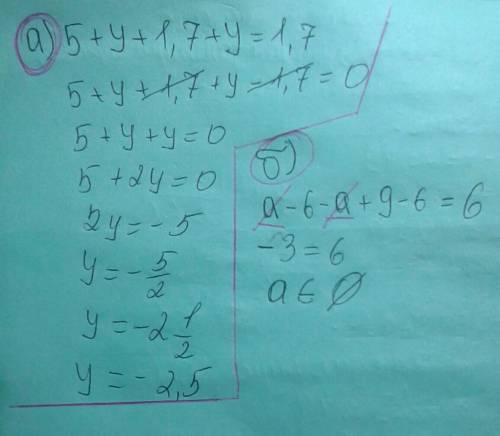 а) 5+y+1,7+y=1,7
5+y+1,7+y-1,7=0
5+y+y=0
5+2y=0
2y=-5
y=-5/2
y=-2 1/2
y=-2,5
б)
a-6-a+9-6=6
-3=6
a∈∅